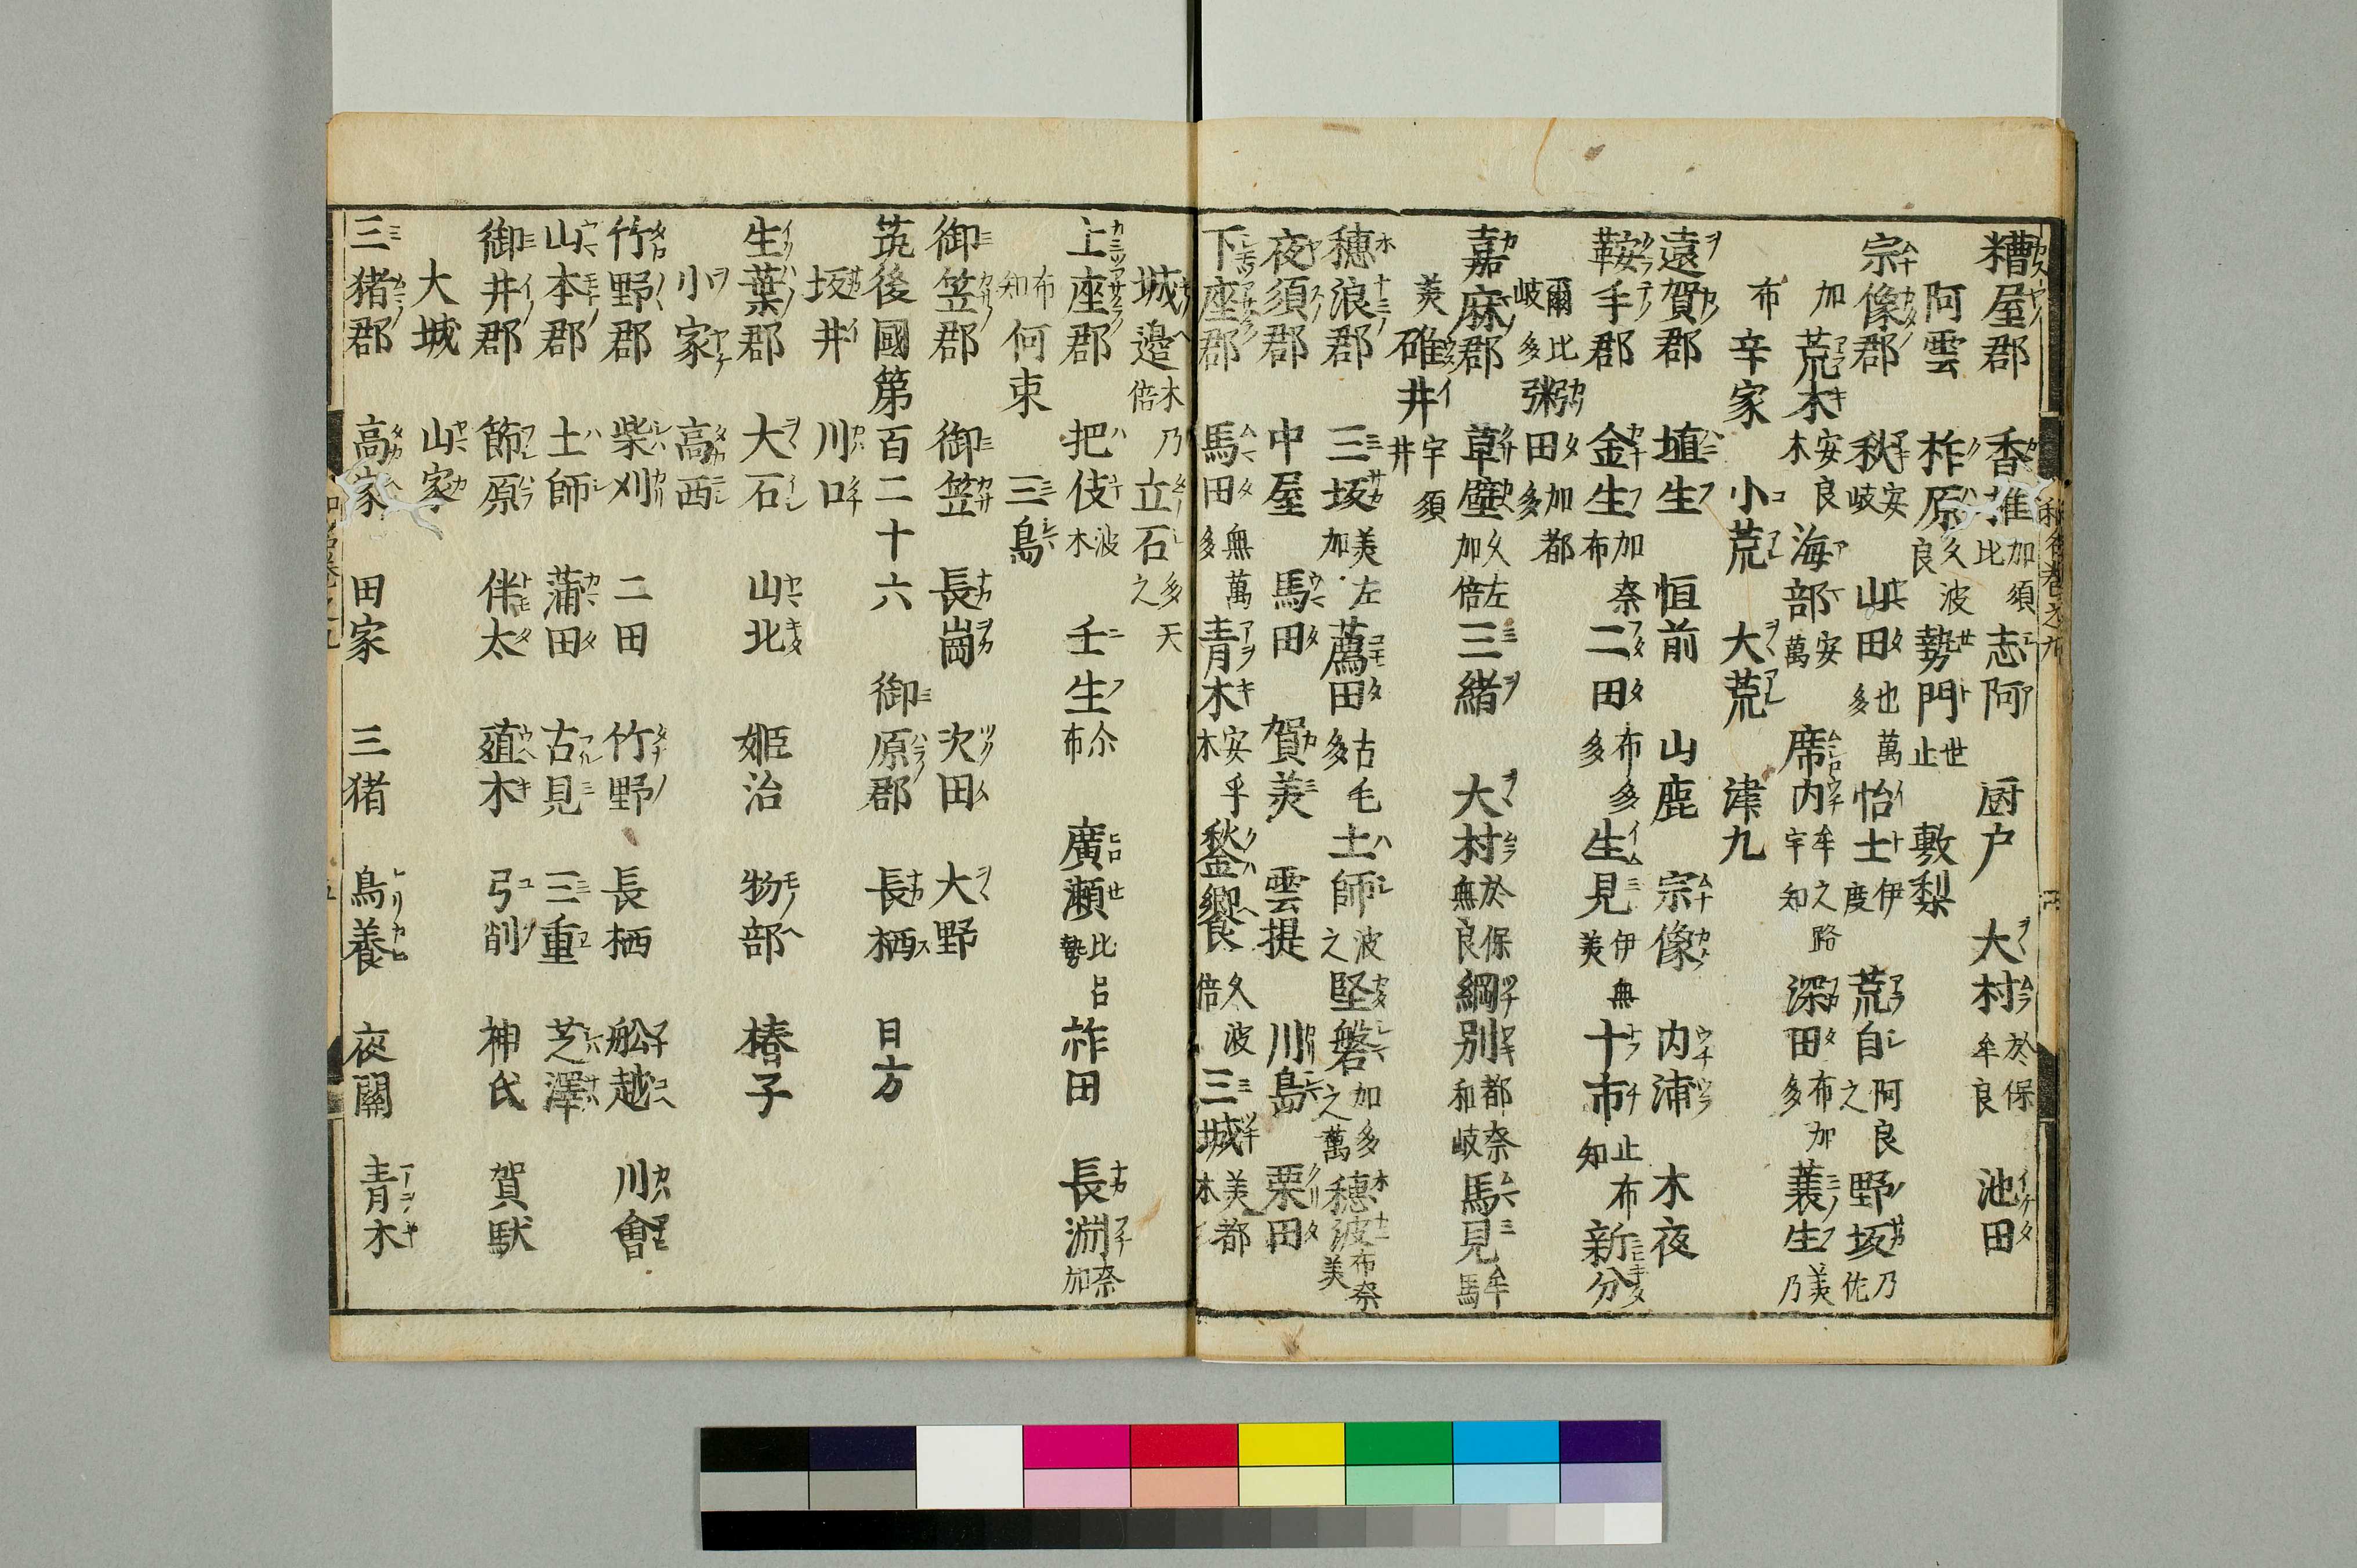 糟屋郡 香椎加須比 志阿 厨戸 大村於保牟良 池田
阿雲 柞原久波良 勢門世止 敷梨
宗像郡 秋安岐 山田也萬多 怡土伊度 荒自阿良之 野坂乃佐
加 荒木安良木 海部安萬 席内牟之路宇知 深田布加多 蓑生美乃
布 辛家 小荒 大荒 津九
遠賀郡 埴生 恒前 山鹿 宗像 内浦 木夜
鞍手郡 金生加奈布 二田布多多 生見伊無美 十市止布知 新分
爾比岐多 粥田加都多
嘉麻郡 草壁久左加倍 三緒 大村於保無良 綱別都奈和岐 馬見牟馬
美 碓井宇須井
穗浪郡 三坂美左加 薦田古毛多 土師波之 堅磐加多之萬 穗波布奈美
夜須郡 中屋 馬田 賀美 雲提 川島 栗田
下座郡 馬田無萬多 青木安乎木 鍫饗久波倍 三城美都木
城邊木乃倍 立石多天之
上座郡 把伎波木 壬生尒布 廣瀬比呂勢 祚田 長淵奈加
布知 何束 三島
御笠郡 御笠 長崗 次田 大野
筑後國第百二十六 御原郡 長栖 日方
坂井 川口
生葉郡 大石 山北 姫治 物部 椿子
小家 高西
竹野郡 柴刈 二田 竹野 長栖 舩越 川會
山本郡 土師 蒲田 古見 三重 芝澤
御井郡 節原 伴太 殖木 弓削 神氏 賀駄
大城 山家
三猪郡 高家 田家 三猪 鳥養 夜關 青木